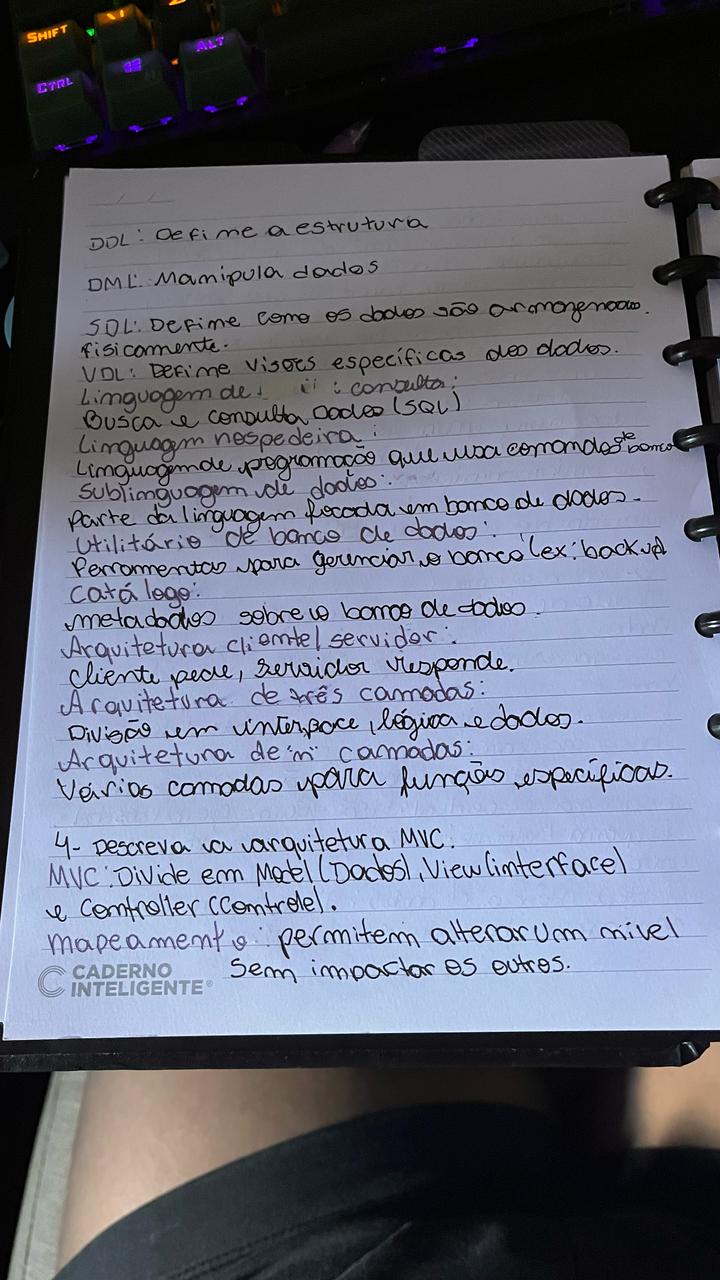 SHIFT
CTRL
ALT
DDL: Define a estrutura
DML: Manipula dados
SDL: Define como os dados são armazenados.
fisicamente.
VDL: Define visões específicas dos dados.
Linguagem de : consulta:
Busca e consulta dados (SQL)
Linguagem hospedeira:
Linguagem de programação que usa comandos de banco
Sublinguagem de dados:
Parte da linguagem focada em banco de dados.
Utilitário de banco de dados:
Ferramentas para gerenciar o banco (ex: backup
Catálogo:
metadados sobre o banco de dados.
Arquitetura cliente/servidor:
Cliente pede, servidor responde.
Arquitetura de três camadas:
Divisão em interface, lógica e dados.
Arquitetura de "n" camadas:
Várias camadas para função específicas.
4- Descreva a arquitetura MVC.
MVC: Divide em Model (Dados), View (interface)
e Controller (Controle).
mapeamento: permitem alterar um nível
sem impactar os outros.
CADERNO
INTELIGENTE®